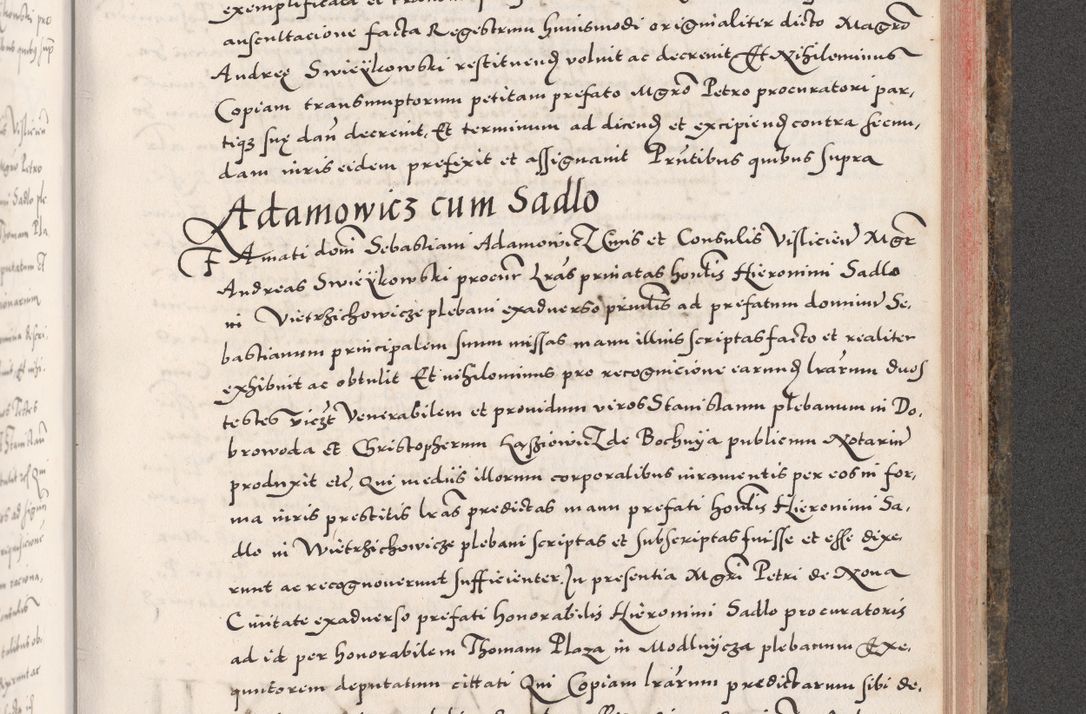 exemplificata et
auscultacione facta Regestrum huiusmodi originaliter dicto Magro
Andreę Swieykowski restituendum voluit ac decreuit Et Nihilominus
Copiam transumptorum petitam prefato Mgro Petro procuratori par,
tiqз suę dari decreuit, Et terminum ad dicend et excipiend contra secun,
dam iuris eidem prefixit et assignauit Prntibus quibus supra
Adamowicz cum Sadlo
Famati domi Sebastiani Adamowicz Ciuis et Consulis Vislicien Mgr
Andreas Swieykowski procur lras priuatas hondis Hieronimi Sadlo
in Vietrzichowicze plebani exaduerso prindis ad prefatum dominum Se,
bastianum principalem suum missas manu illius scriptas facto et realiter
exhibuit ac obtulit Et nihilominus pro recognicione earund lrarum duos
testes viczt Venerabilem et prouidum viros Stanislaum plebanum in Do,
browoda et Christopherum Laszowicz de Bochnya publicum Notarium
produxit etc, Qui mediis illorum corporalibus iuramentis per eos in for,
ma iuris prestitis lras predictas manu prefati hondis Hieronimi Sa,
dlo in Wietrzichowicze plebani scriptas et subscriptas fuisse et esse dixe,
runt ac recognouerunt sufficienter. In presentia Mgri Petri de Noua
Ciuitate exaduerso prefati honorabilis Hieronimi Sadlo procuratoris
ad id per honorabilem Thomam Plaza in Modlnycza plebanum Exe,
quutorem deputatum cittati Qui Copiam lrarum predictarum sibi de,